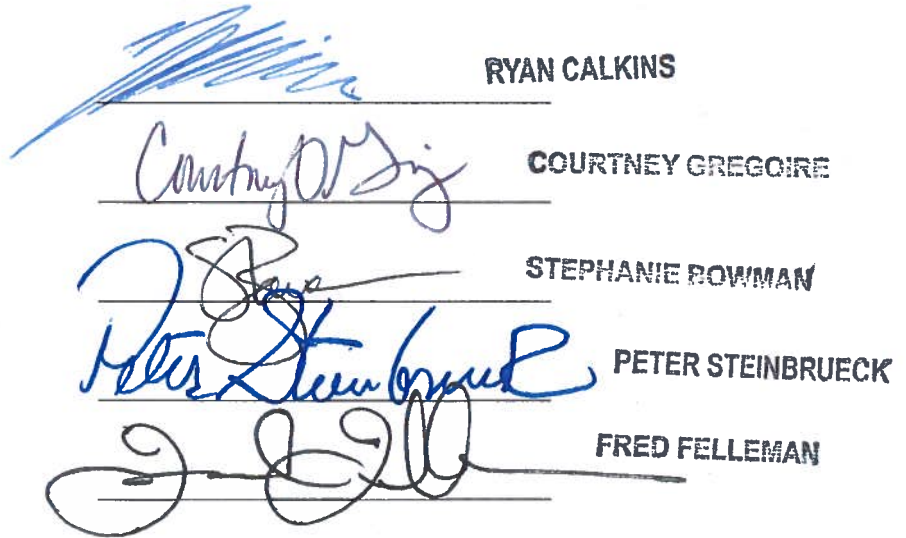 RYAN CALKINS
Courtney COURTNEY GREGOIRE
STEPHANIE BOWMAN
Peter Steinbrueck PETER STEINBRUECK
FRED FELLEMAN